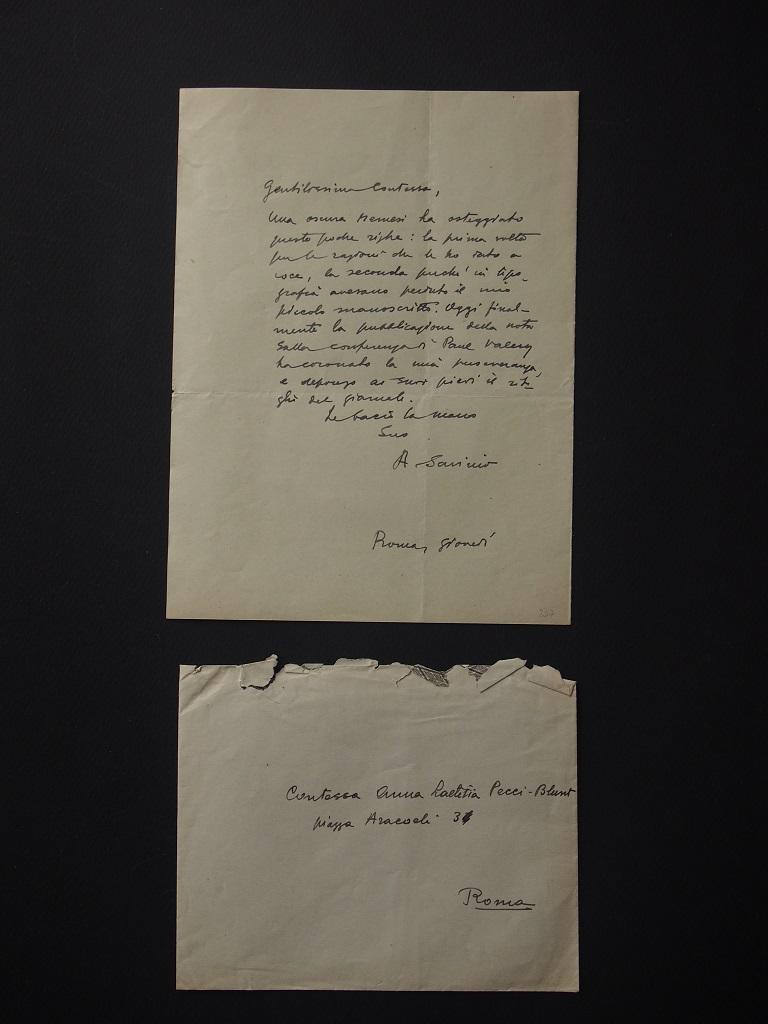 Gentilissima Contessa,
Una oscura Nemesi ha osteggiato
queste poche righe: la prima volta
per le ragioni che le ho dato a
voce, la seconda perché in tipo-
grafia avevano perduto il mio
piccolo manoscritto. Oggi final-
mente la pubblicazione della nota
sulla conferenza di Paul Valery
ha coronato la mia perseveranza,
e depongo ai suoi piedi il rita-
glio del giornale.
Le bacio la mano
Suo
A Savinio
Roma, giovedì
237
Contessa Anna Laetitia Pecci-Blunt
piazza Aracoeli 3
Roma